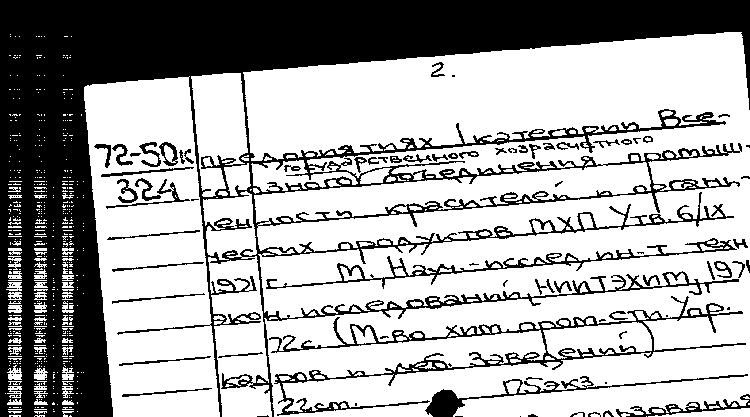 2.
72-50к предприятиях I категории Все-
государственного хозрасчетного
324 союзного объединения промыш-
ленности красителей и органи-
ческих продуктов МХП Утв. 6/IX
1971 г. М., Науч.-исслед. ин-т техн
экон. исследований, [НИИТЭХИМ], 1971
72 с. (М-во хим. пром-сти. Упр.
кадров и учеб. заведений)
22 см. 175 экз.
пользования